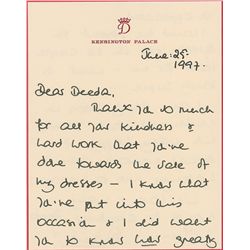 D
KENSINGTON PALACE
June: 25.
1997.
Dear Deeda,
Thank you so much
for all your kindness &
hard work that you've
done towards the sale of
my dresses - I know what
you've put into this
occasion & I did want
you to know how greatly